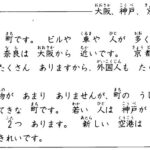 大阪、神戸、
町です。 ビルや 車や 人が 多く
奈良は 大阪から 近いです。 京都
たくさん ありますから、外国人も た
物が あまり ありませんが、町の う
てきな 町です。 若い 人は 神戸が
2つ あります。 新しい 空港は
きれいです。